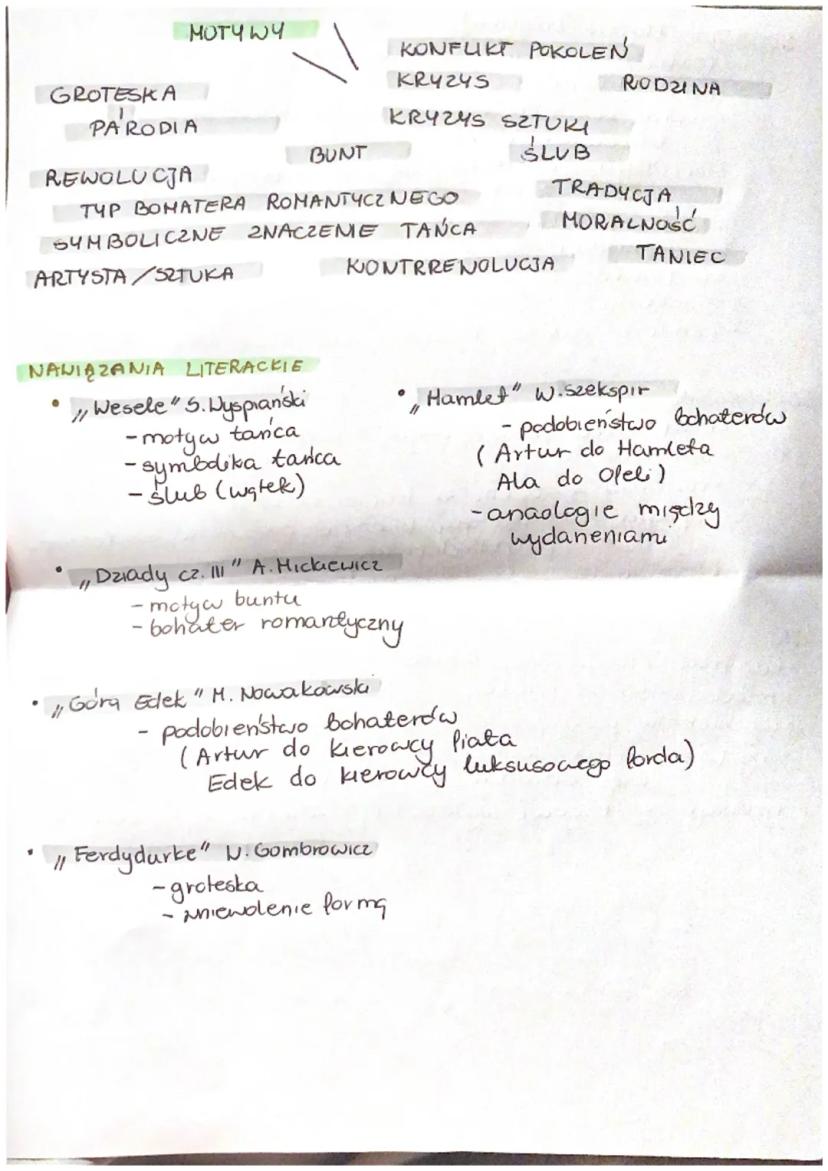 MOTYWY
KONFLIKT POKOLEŃ
GROTESKA
KRYZYS
RODZINA
i
PARODIA
KRYZYS SZTUKI
BUNT
ŚLUB
REWOLUCJA
TRADYCJA
TYP BOHATERA ROMANTYCZNEGO
MORALNOŚĆ
SYMBOLICZNE ZNACZENIE TAŃCA
TANIEC
ARTYSTA/SZTUKA
KONTRREWOLUCJA
NAWIĄZANIA LITERACKIE
• „Wesele" S. Wyspiański
- motyw tańca
- symbolika tańca
- ślub (wątek)
• „Hamlet" W. Szekspir
- podobieństwo bohaterów
(Artur do Hamleta
Ala do Ofelii)
- anaologie między
wydaneniami
• „Dziady cz. III" A. Mickiewicz
- motyw buntu
- bohater romantyczny
• „Górą Edek" M. Nowakowski
- podobieństwo bohaterów
(Artur do kierowcy fiata
Edek do kierowcy luksusowego forda)
• „Ferdydurke" W. Gombrowicz
- groteska
- zniewolenie formą